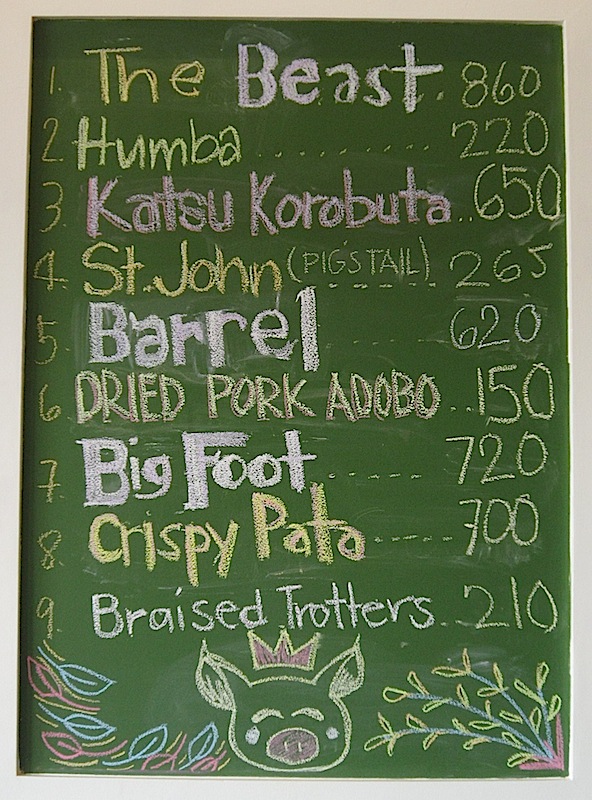 1. The Beast. 860
2 Humba ........ 220
3. Katsu Korobuta.. 650
4. St. John (PIG'S TAIL) ........ 265
5 Barrel ........ 620
6 DRIED PORK ADOBO.. 150
7. Big Foot ........ 720
8. Crispy Pata ...... 700
9. Braised Trotters.. 210